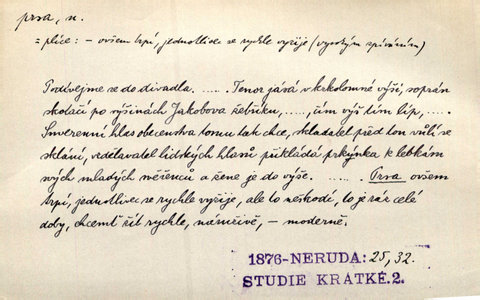 prsa, n.
= plíce: – ovšem trpí, jednotlivec se rychle vyžije (vysokým zpíváním)
Podívejme se do divadla. ..... Tenor jásá v krkolomné výši, soprán
skotačí po výšinách Jakobova žebříku, ....., čím výš tím líp, .....
Suverenní hlas obecenstva tomu tak chce, skladatel před tou vůlí se
sklání, vzdělavatel lidských hlasů přikládá prkýnka k lebkám
svých mladých věřenců a žene je do výše. ..... Prsa ovšem
trpí, jednotlivec se rychle vyžije, ale to neškodí, to je ráz celé
doby, chcemť žít rychle, náruživě, – moderně.
1876-NERUDA: 25, 32.
STUDIE KRÁTKÉ.2.